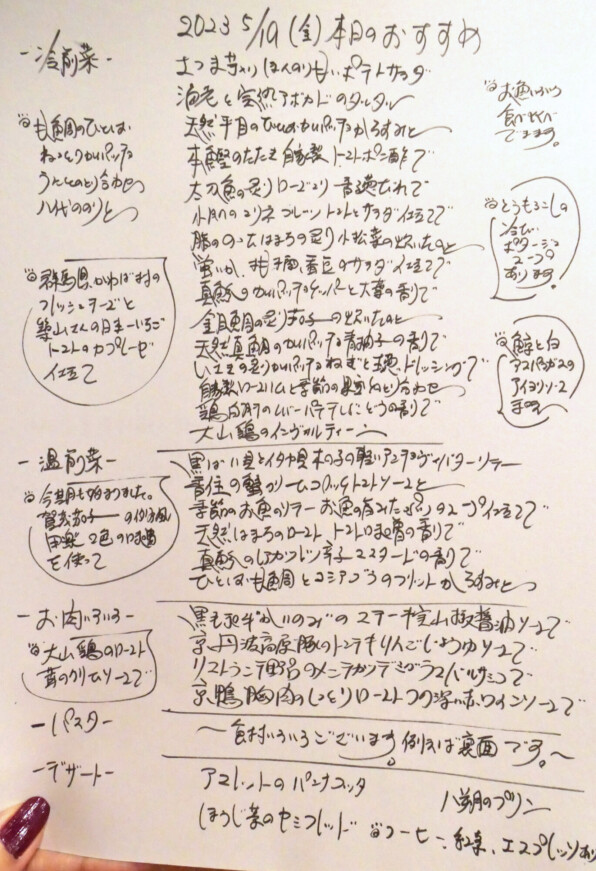 2023 5/19 (金) 本日のおすすめ
ー冷前菜ー
さつま芋入り ほんのり甘い ポテトサラダ
海老と完熟アボカドのタルタル
天然平目のひとしおカルパッチョからすみと
本鰹のたたき 自家製 トマトポン酢で
太刀魚の炙り ローズマリー香る
小イカのマリネ フルーツトマトとサラダ仕立てで
脂ののったはまちの炙り 小松菜の炊いたのと
蛍いか、のサラダ仕立てで
真ダコのカルパッチョ ケッパーと大葉の香りで
金目鯛の炙り 茄子の炊いたのと
天然真鯛のカルパッチョ 青柚子の香りで
いさきの炙りカルパッチョ ねぎと ドレッシングで
自家製ロースハムと季節の果実の取り合わせ
鶏白肝のレバーパテ ぶどうの香りで
大山鶏のインヴォルティーニ
甘鯛のひとしお
ねっとりカルパッチョ
うにとのとり合わせ
八代ののりと
群馬県、かわば村の
フレッシュチーズと
さんの日本一いちご
トマトのカプレーゼ
仕立て
お魚いろいろ
食べくらべ
できます。
とうもろこしの
冷たい
ポタージュ
スープ
あります。
鯨と白
アスパラガスの
アイヨリソース
ー温前菜ー
黒ばい貝とイタヤ貝 木の子の軽いアンチョヴィバターソテー
香住の蟹のクリームコロッケ トマトソースと
季節のお魚のソテー お魚の旨みたっぷりのスープ仕立てで
天然はまちのロースト トマト の香りで
真ダコのカツレツ 辛子マスタードの香りで
ひとしお甘鯛とコシアブラのフリット からすみと
今期も始まりました。
賀茂茄子の
田楽 2色の味噌
を使って
ーお肉いろいろー
黒毛和牛かいのみのステーキ 山椒醤油ソースで
京丹波高原豚のトンテキ りんごじょうゆソースで
リストランテ野呂のメンチカツ デミグラスバルサミコで
京鴨胸肉のしっとりロースト つの 赤ワインソースで
大山鶏のロースト
茸のクリームソースで
ーパスター
〜食材いろいろございます。例えば裏面です。〜
ーデザートー
アマレットのパンナコッタ
八朔のプリン
ほうじ茶のセミフレッド
コーヒー、紅茶、エスプレッソあり